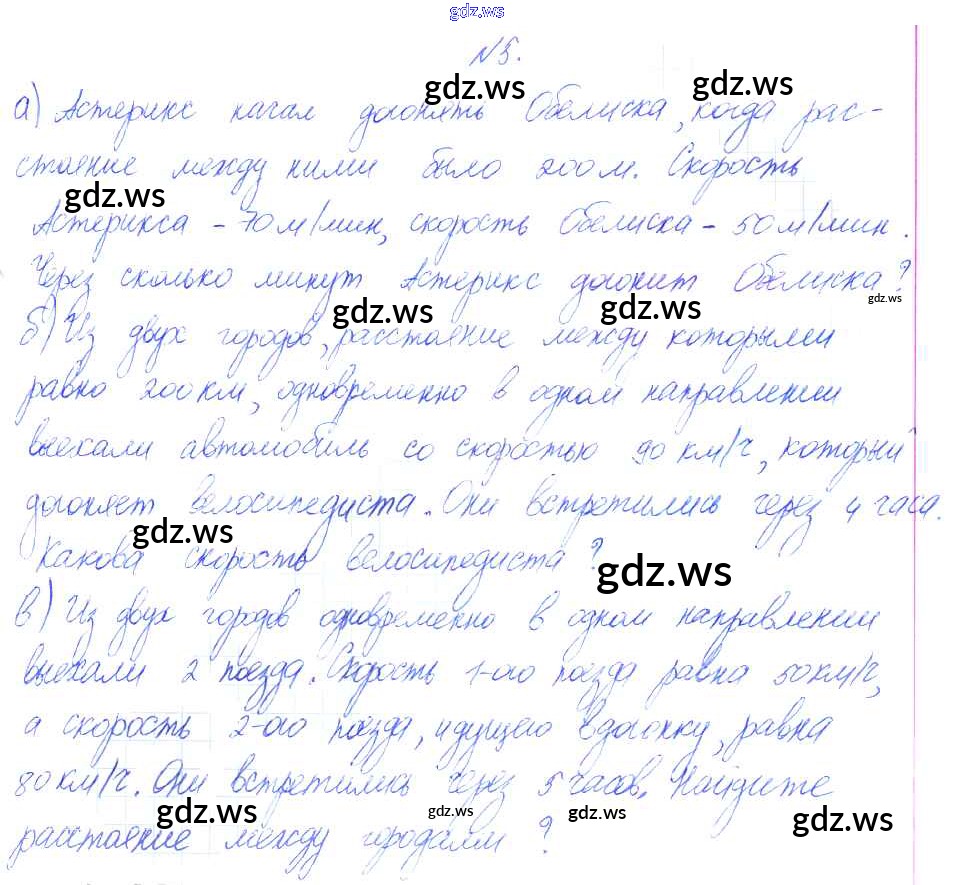 gdz.ws
№5.
а) Астерикс начал догонять Обелиска, когда рас-
стояние между ними было 200 м. Скорость
Астерикса - 70 м/мин, скорость Обелиска - 50 м/мин.
Через сколько минут Астерикс догонит Обелиска?
б) Из двух городов, расстояние между которыми
равно 200 км, одновременно в одном направлении
выехали автомобиль со скоростью 90 км/ч, который
догоняет велосипедиста. Они встретились через 4 часа.
Какова скорость велосипедиста?
в) Из двух городов одновременно в одном направлении
выехали 2 поезда. Скорость 1-ого поезда равна 50 км/ч,
а скорость 2-ого поезда, идущего вдогонку, равна
80 км/ч. Они встретились через 5 часов. Найдите
расстояние между городами?
gdz.ws
gdz.ws
gdz.ws
gdz.ws
gdz.ws
gdz.ws
gdz.ws
gdz.ws
gdz.ws
gdz.ws
gdz.ws
gdz.ws